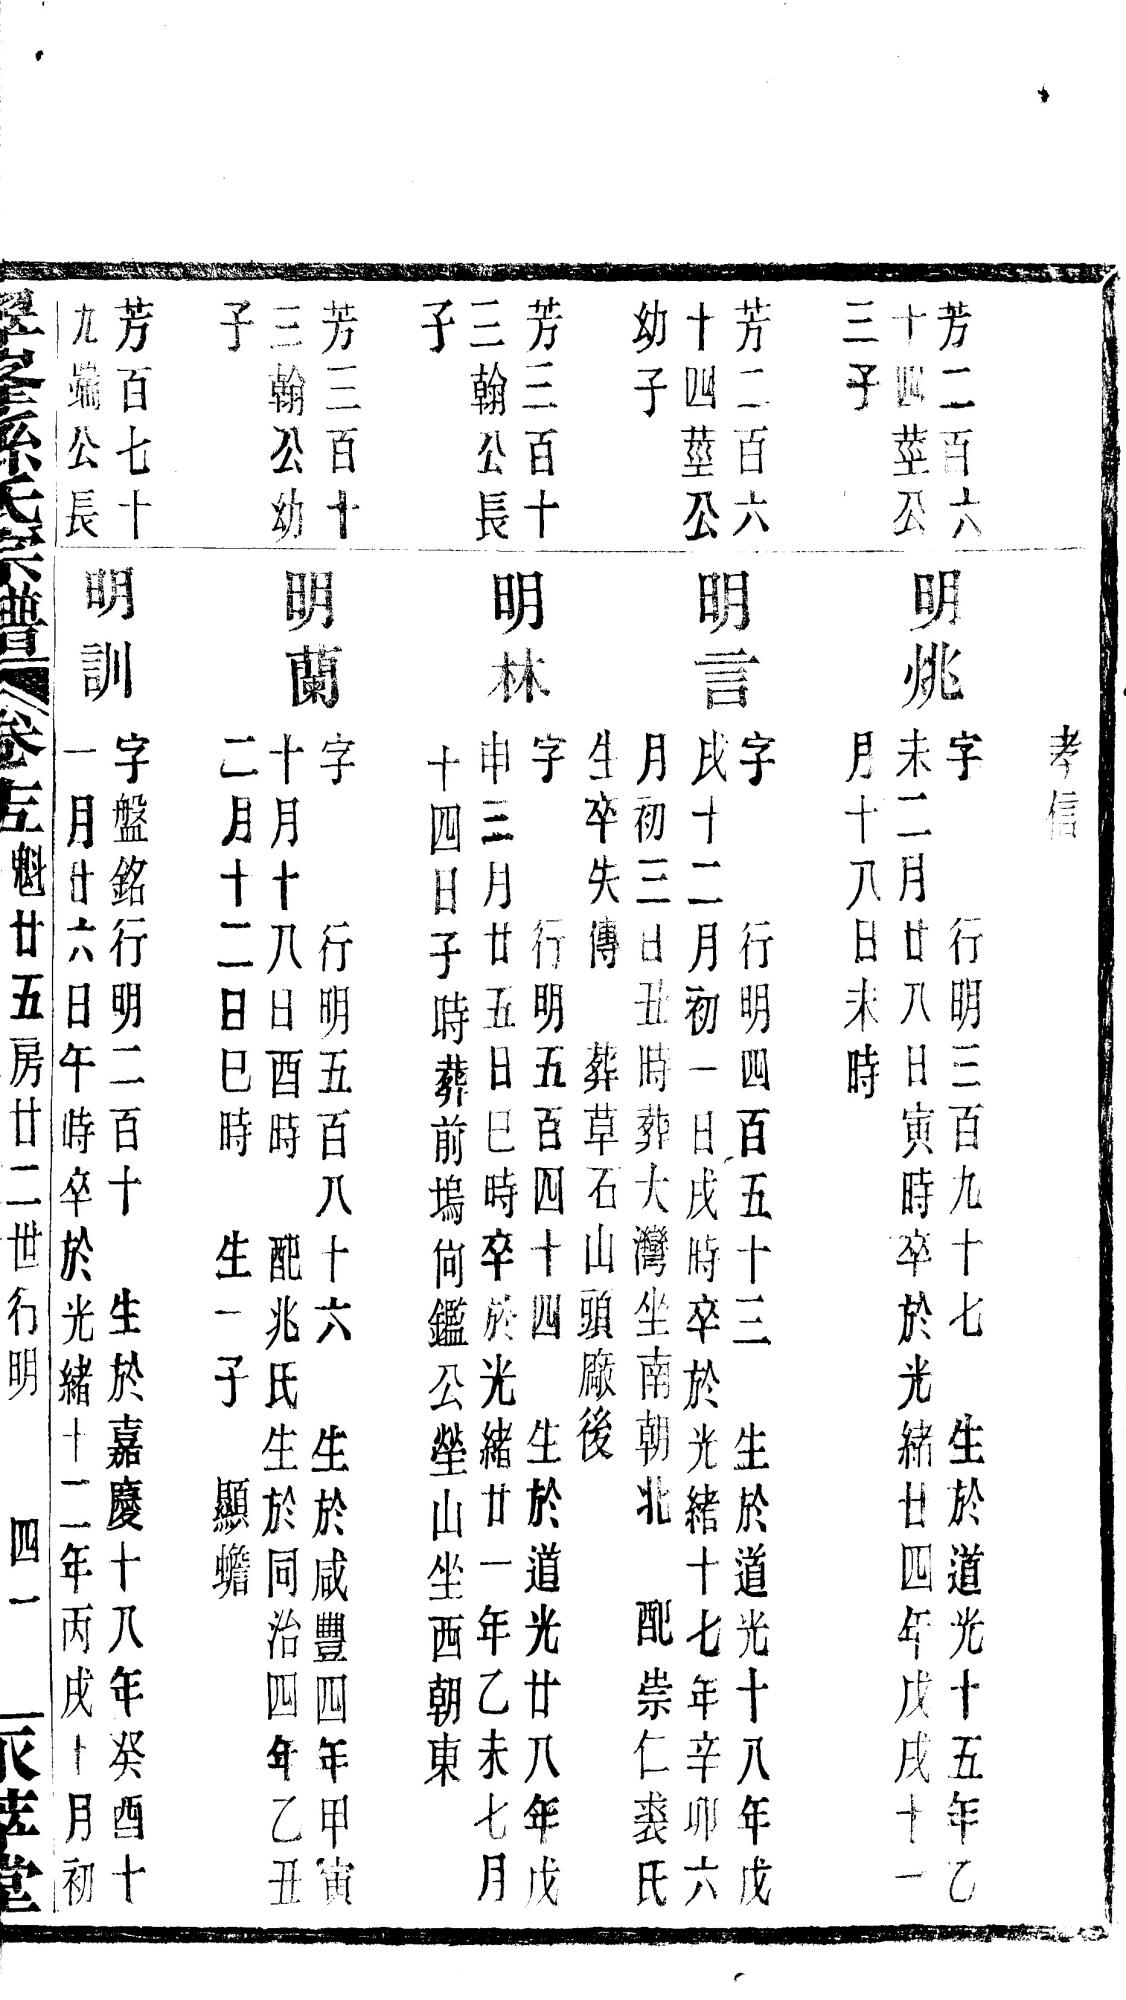 孝信
芳二百六
十四莖公
三子
明姚
字　行明三百九十七　生於道光十五年乙
未二月廿八日寅時卒於光緒廿四年戊戌十一
月十八日未時
芳二百六
十四莖公
幼子
明言
字　行明四百五十三　生於道光十八年戊
戌十二月初一日戌時卒於光緒十七年辛卯六
月初三日丑時葬大灣坐南朝北　配崇仁裘氏
生卒失傳　葬草石山頭廠後
芳三百十
三翰公長
子
明林
字　行明五百四十四　生於道光廿八年戊
申三月廿五日巳時卒於光緒廿一年乙未七月
十四日子時葬前塢尙鑑公塋山坐西朝東
芳三百十
三翰公幼
子
明蘭
字　行明五百八十六　生於咸豐四年甲寅
十月十八日酉時　配兆氏生於同治四年乙丑
二月十二日巳時　生一子　顯蟾
芳百七十
九端公長
明訓
字盤銘行明二百十　生於嘉慶十八年癸酉十
一月廿六日午時卒於光緒十二年丙戌十月初
孫氏宗譜　卷　魁廿五房廿二世行明　四一　堂